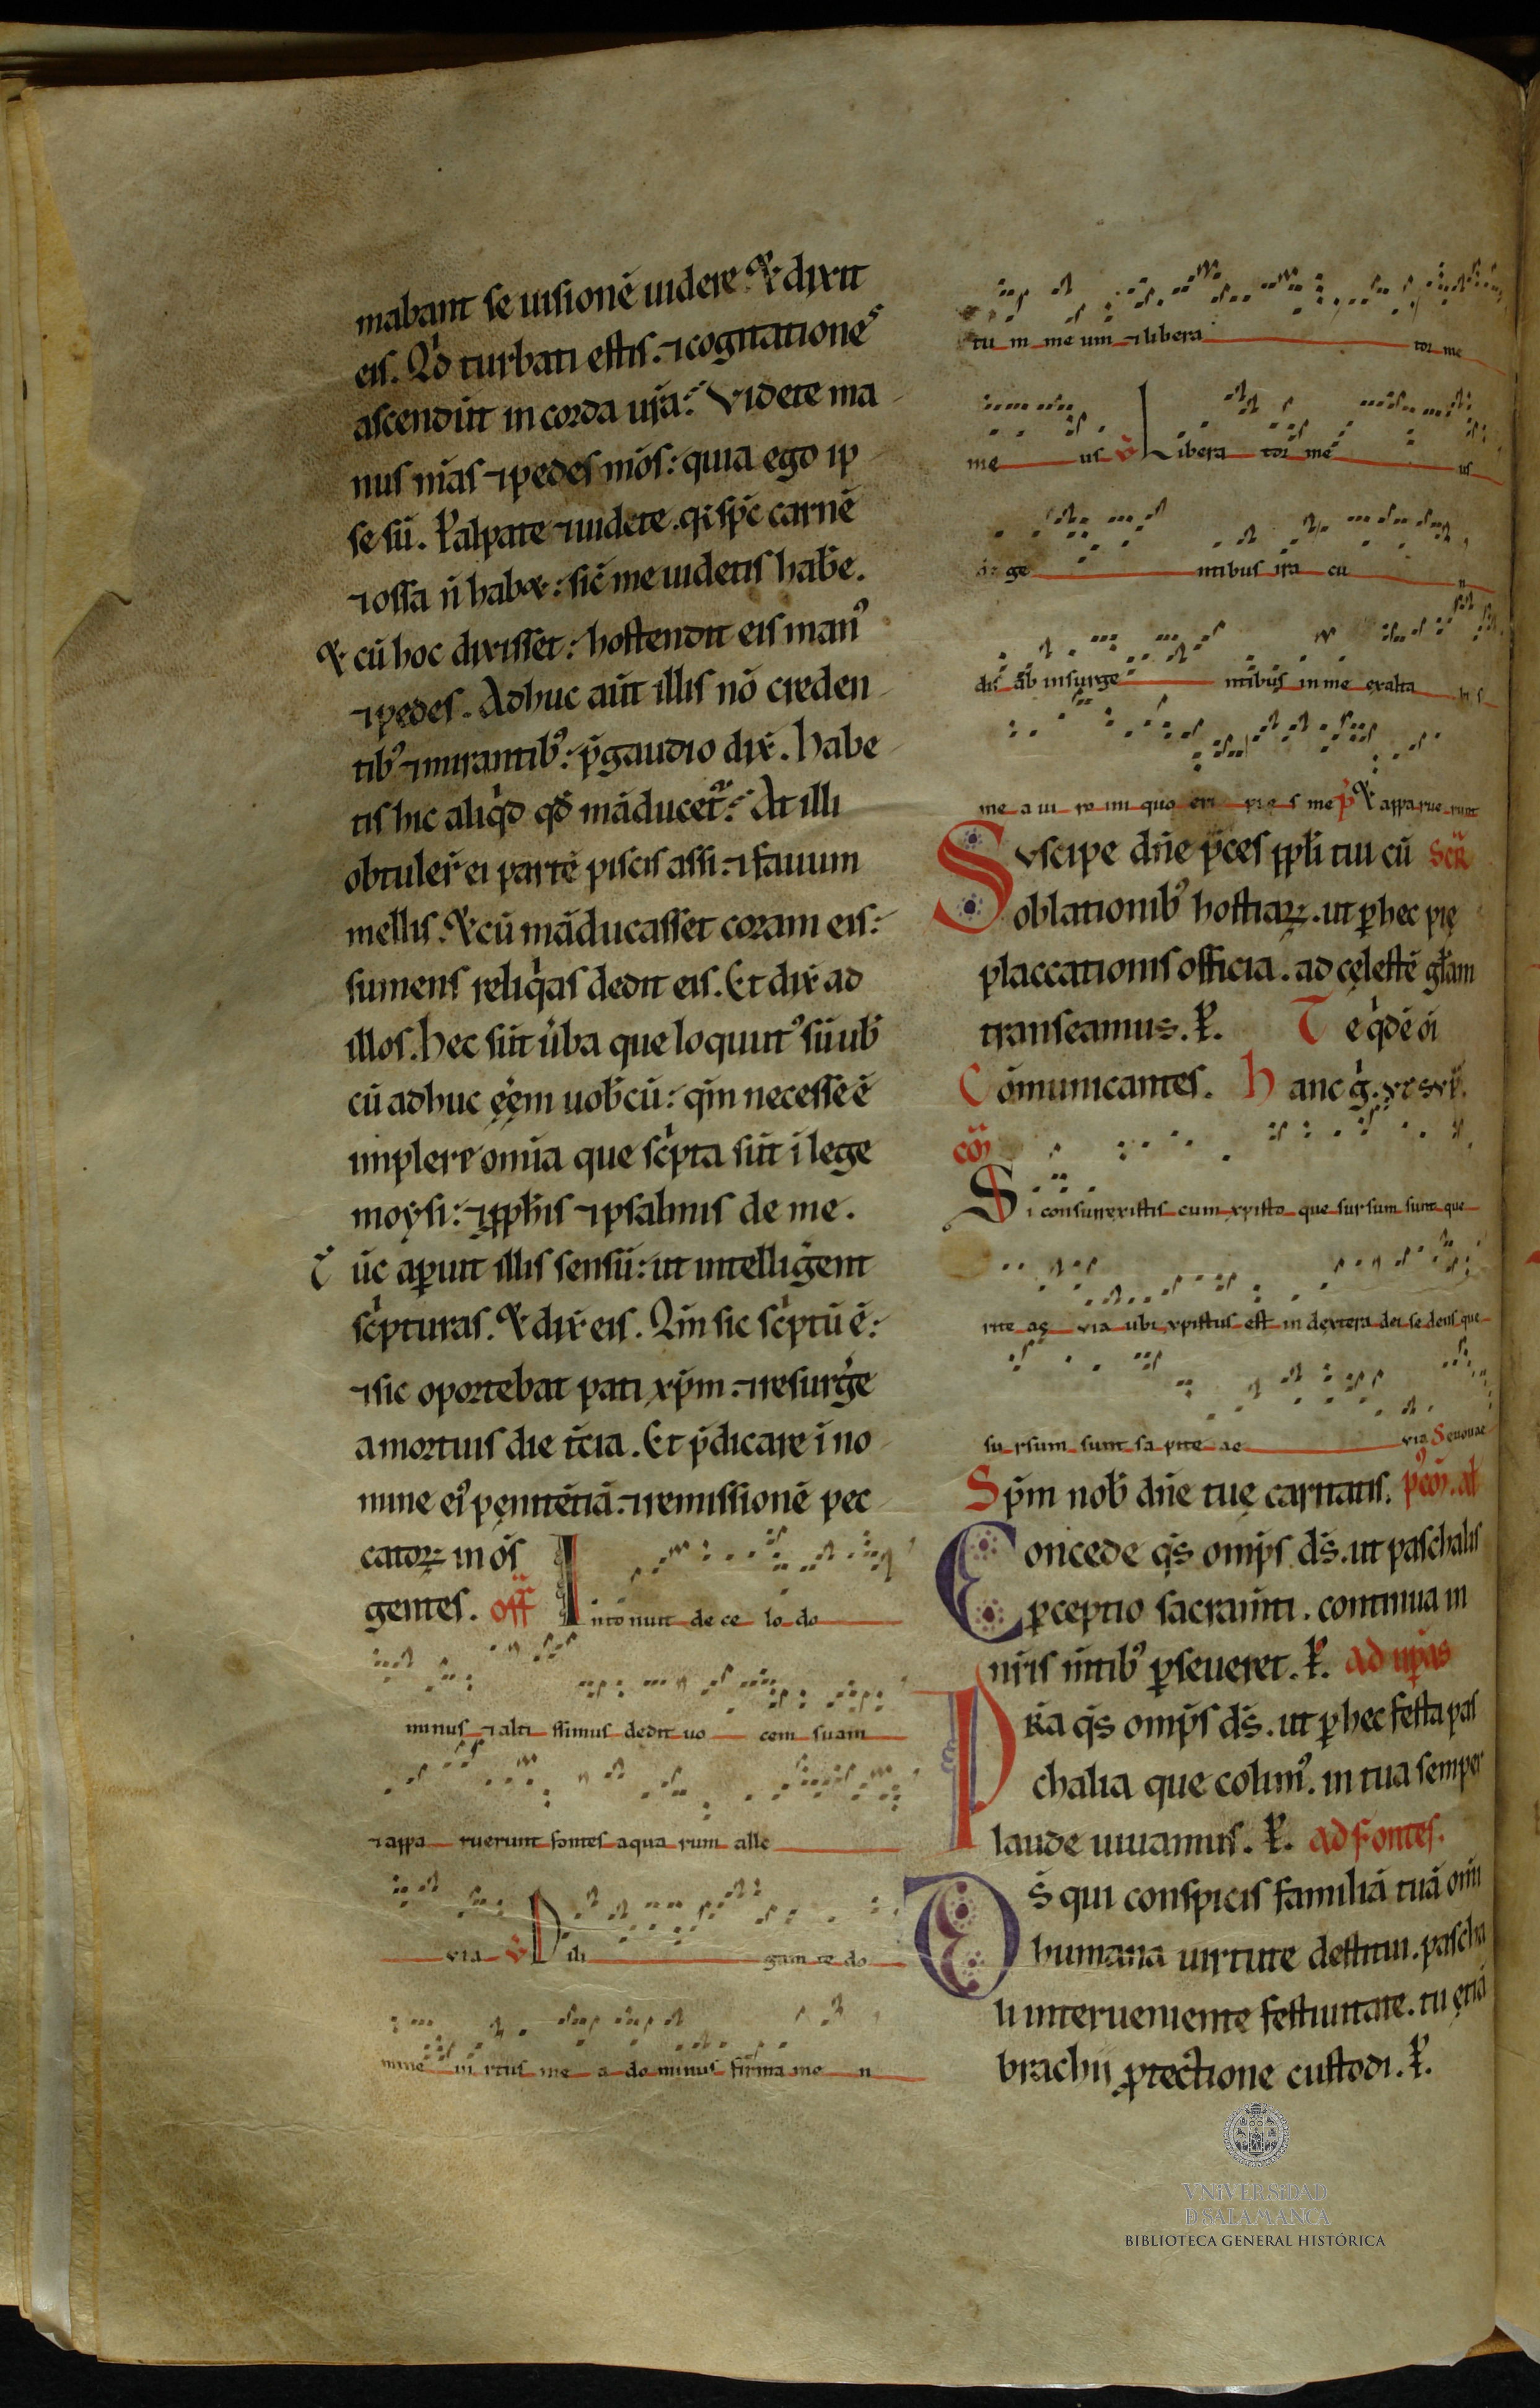 mabant se uisionē uidere. & dixit
eis. Qͥd turbati estis. ⁊ cogitationes
ascendūt in corda ur̄a? Videte ma
nus m̄as ⁊ pedes m̄os: quia ego ip
se sū. Palpate ⁊ uidete. qͥ sp̄c carnē
⁊ ossa n̄ hab&: sic̄ me uidetis hab̄e.
& cū hoc dixisset: hostendit eis manꝰ
⁊ pedes. Adhuc aūt illis nō creden
tibꝰ ⁊ mirantibꝰ: p̄ gaudio dix̄. Habe
tis hic aliqͥd qd̄ māducet᷑? At illi
obtuler̄ ei partē piscis assi: ⁊ fauum
mellis. & cū māducasset coram eis:
sumens reliqͥas dedit eis. Et dix̄ ad
illos. hec sūt u̓ba que locutꝰ sū uob̄
cū adhuc ęēm uob̄cū: qm̄ necesse ē
implere om̄ia que scͥpta sūt ī lege
moysi: ⁊ ꝓph̄is ⁊ psalmis de me.
Tūc aꝑuit illis sensū: ut intelligēnt
scͥpturas. & dix̄ eis. Qm̄ sic scͥptū ē:
⁊ sic oportebat pati xp̄m: ⁊ resurg̓e
a mortuis die t̄cia. Et p̄dicare ī no
mine eiꝰ pęnitētiā: ⁊ remissionē pec
catoꝝ in om̄s
gentes. off̄ Intonuit de ce lo do
minus ⁊ alti ssimus dedit uo cem suam
⁊ appa ruerunt fontes aqua rum alle
via V̄ Dili gam te do
mine ui rtus me a do minus firma me n
tu m me um ⁊ libera tor me
me us V̄ Libera tor me us
ge ntibus ira cu n
dis ab insurge ntibus in me exalta bis
me a ui ro ini quo eri pie s me P̄ & apparue runt
Suscipe dn̄e p̄ces ppl̄i tui cū Scr̄
oblationibꝰ hostiaꝝ. ut ꝑ hec pię
placcationis officia. ad cęlestē gl̄am
transeamus. P̄. Te qͥdē ōi
Cōmunicantes. Hanc g̓.
cōī
Si consurrexistis cum xpisto que sursum sunt que
rite ae via ubi xpistus est in dextera dei se dens que
su rsum sunt sa pite ae via Seuouae
Sp̄m nob̄ dn̄e tuę caritatis. p̓ cōī. al̄
Concede qs̄ omps̄ ds̄. ut paschalis
ꝑceptio sacram̄ti. continua in
nr̄is m̄tibꝰ ꝑseueret. P̄. ad uꝑas
Pr̄a qs̄ omps̄ ds̄. ut ꝑ hec festa pas
chalia que colimꝰ. in tua semper
laude uiuamus. P̄. ad fontes.
Ds̄ qui conspicis familiā tuā om̄i
humana uirtute destitui. pascha
li interueniente festiuitate. tu ętiā
brachii ꝓtectione custodi. P̄.
VNiVERSiDAD
D SALAMANCA
BIBLIOTECA GENERAL HISTÓRICA